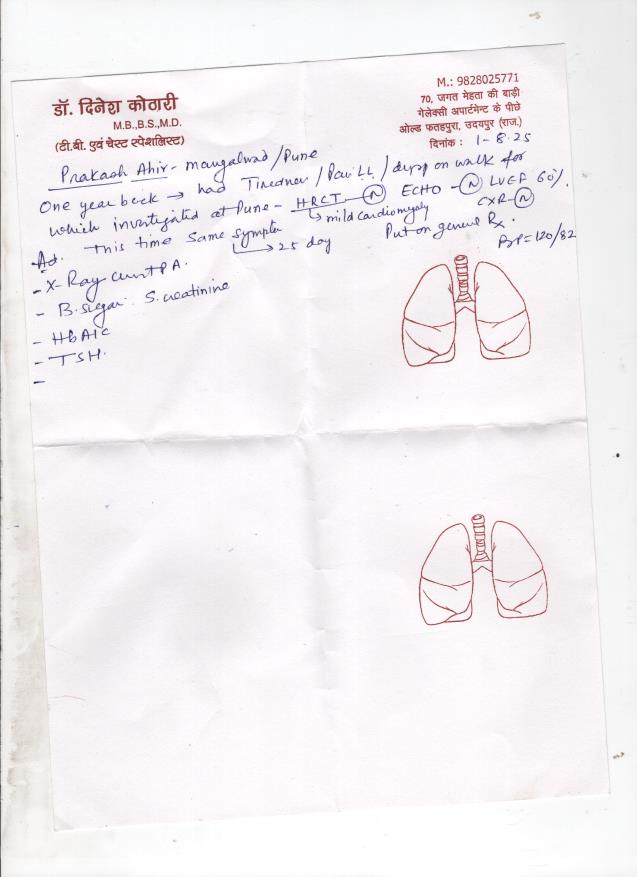 डॉ. दिनेश कोठारी
M.B.,B.S.,M.D.
(टी.बी. एवं चेस्ट स्पेशलिस्ट)
M.: 9828025771
70, जगत मेहता की बाड़ी
गेलेक्सी अपार्टमेन्ट के पीछे
ओल्ड फतहपुरा, उदयपुर (राज.)
दिनांक : 1-8-25
Prakash Ahir - mangalwad/Pune
One year back → had Tiredness / Pain LL / dysp on walk for
which investigated at Pune - HRCT - N ECHO - N LVEF 60%.
→ mild cardiomegaly CXR - N
Ad. This time same symptom Put on general Rx.
→ 25 day BP = 120/82
- X-Ray chest PA.
- B. sugar S. creatinine
- HbA1C
- TSH.
-